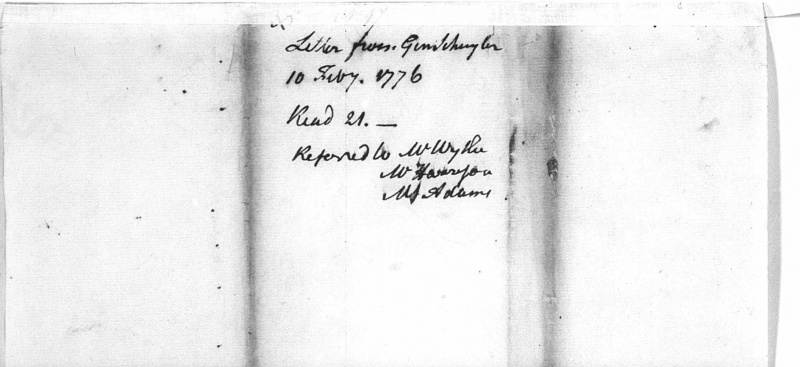 Letter from Genl Schuyler
10 Feby. 1776
Read 21. —
Referred to Mr Wythe
Mr Harrison
Mr Adams